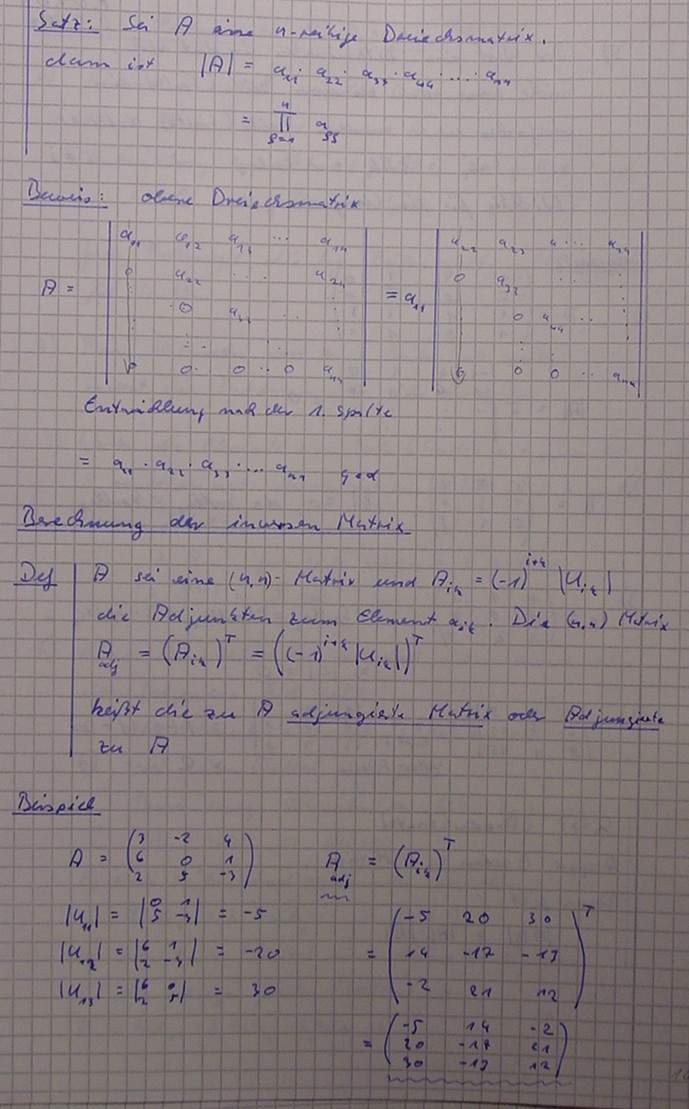 Satz: Sei A eine n-reihige Dreiecksmatrix.
dann ist |A| = a₁₁ · a₂₂ · a₃₃ · a₄₄ · ... · aₙₙ
= ∏ⁿ_{ρ=1} a_{ρρ}
Beweis: obere Dreiecksmatrix
A = | a₁₁ a₁₂ a₁₃ ... a₁ₙ | = a₁₁ | a₂₂ a₂₃ a... a₂ₙ |
| 0 a₂₂ ... a₂ₙ | | 0 a₃₂ ... |
| 0 a₃₃ ... | | 0 a₄₄ ... |
| 0 0 0 .. 0 aₙₙ | | 0 0 0 .. aₙₙ |
Entwicklung nach der 1. Spalte
= a₁₁ · a₂₂ · a₃₃ · ... aₙₙ qed
Berechnung der inversen Matrix
Def A sei eine (n,n)-Matrix und Aᵢₖ = (-1)^{i+k} |Uᵢₖ|
die Adjunkten zum Element aᵢₖ. Die (n,n) Matrix
A_adj = (Aᵢₖ)ᵀ = ((-1)^{i+k} |Uᵢₖ|)ᵀ
heißt die zu A adjungierte Matrix oder Adjungierte
zu A
Beispiel
A = ( 3 -2 4 ; 6 0 1 ; 2 5 -3 ) A_adj = (Aᵢₖ)ᵀ
|U₁₁| = | 0 1 ; 5 -3 | = -5
|U₁₂| = | 6 1 ; 2 -3 | = -20
|U₁₃| = | 6 0 ; 2 5 | = 30
= ( -5 20 30 ; 14 -17 -19 ; -2 21 12 )ᵀ
= ( -5 14 -2 ; 20 -17 21 ; 30 -19 12 )